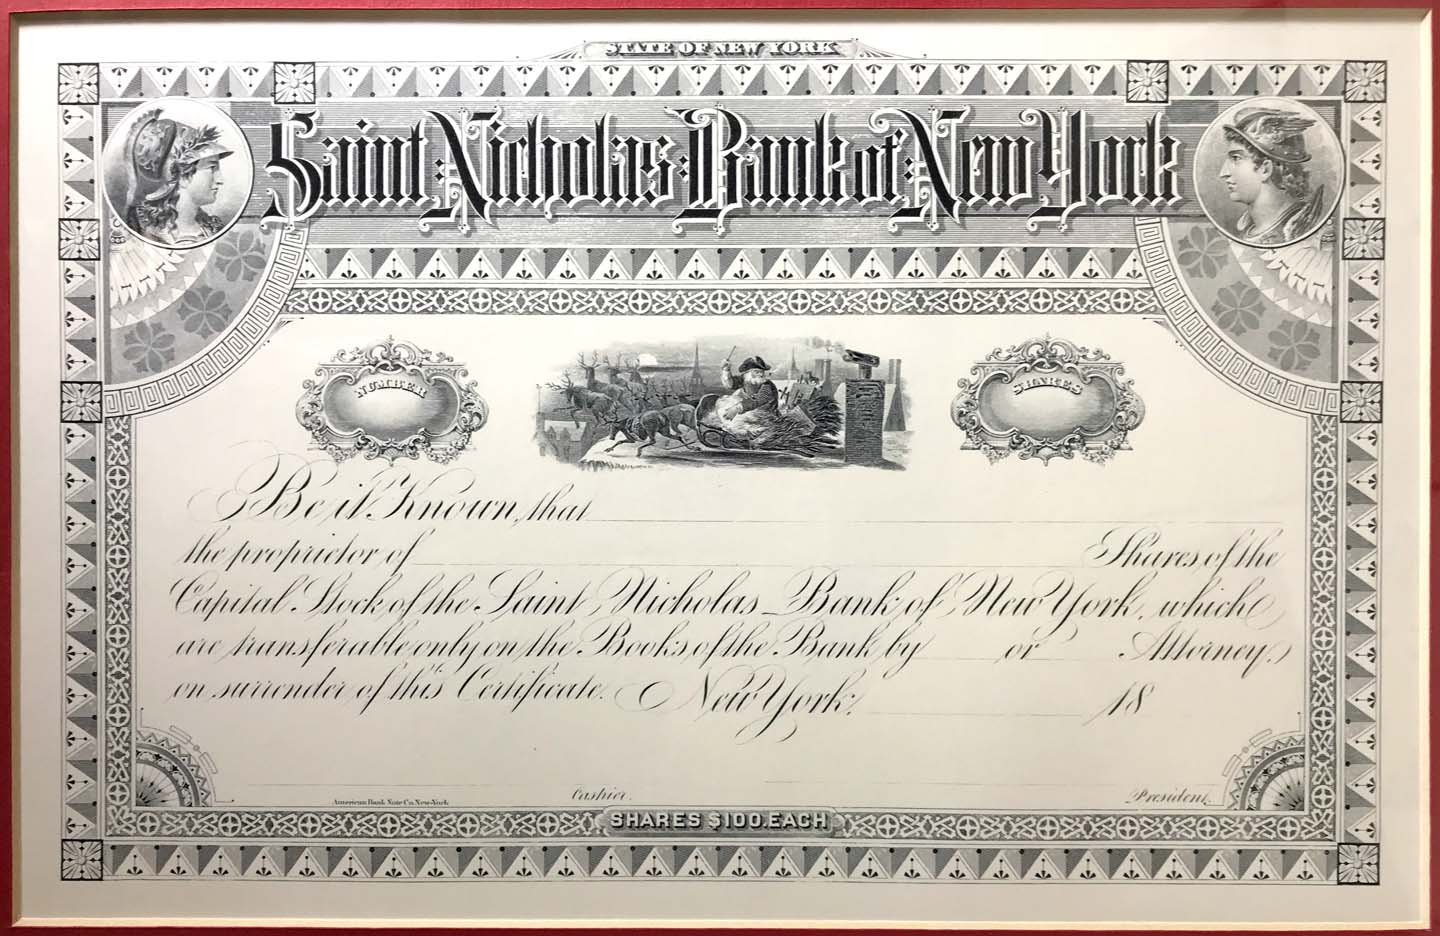 STATE OF NEW YORK
Saint Nicholas Bank of New York
NUMBER
SHARES
Be it Known, that
the proprietor of Shares of the
Capital Stock of the Saint Nicholas Bank of New York, which
are transferable only on the Books of the Bank by or Attorney,
on surrender of this Certificate. New York, 18
American Bank Note Co. New-York
Cashier.
President.
SHARES $100. EACH